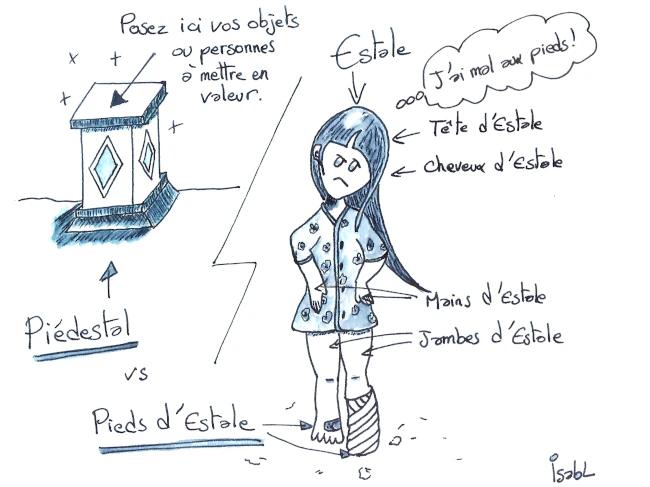 Posez ici vos objets
ou personnes
à mettre en
valeur.
Piédestal
vs
Pieds d'Estale
Estale
J'ai mal aux pieds!
Tête d'Estale
Cheveux d'Estale
Mains d'Estale
Jambes d'Estale
isabL